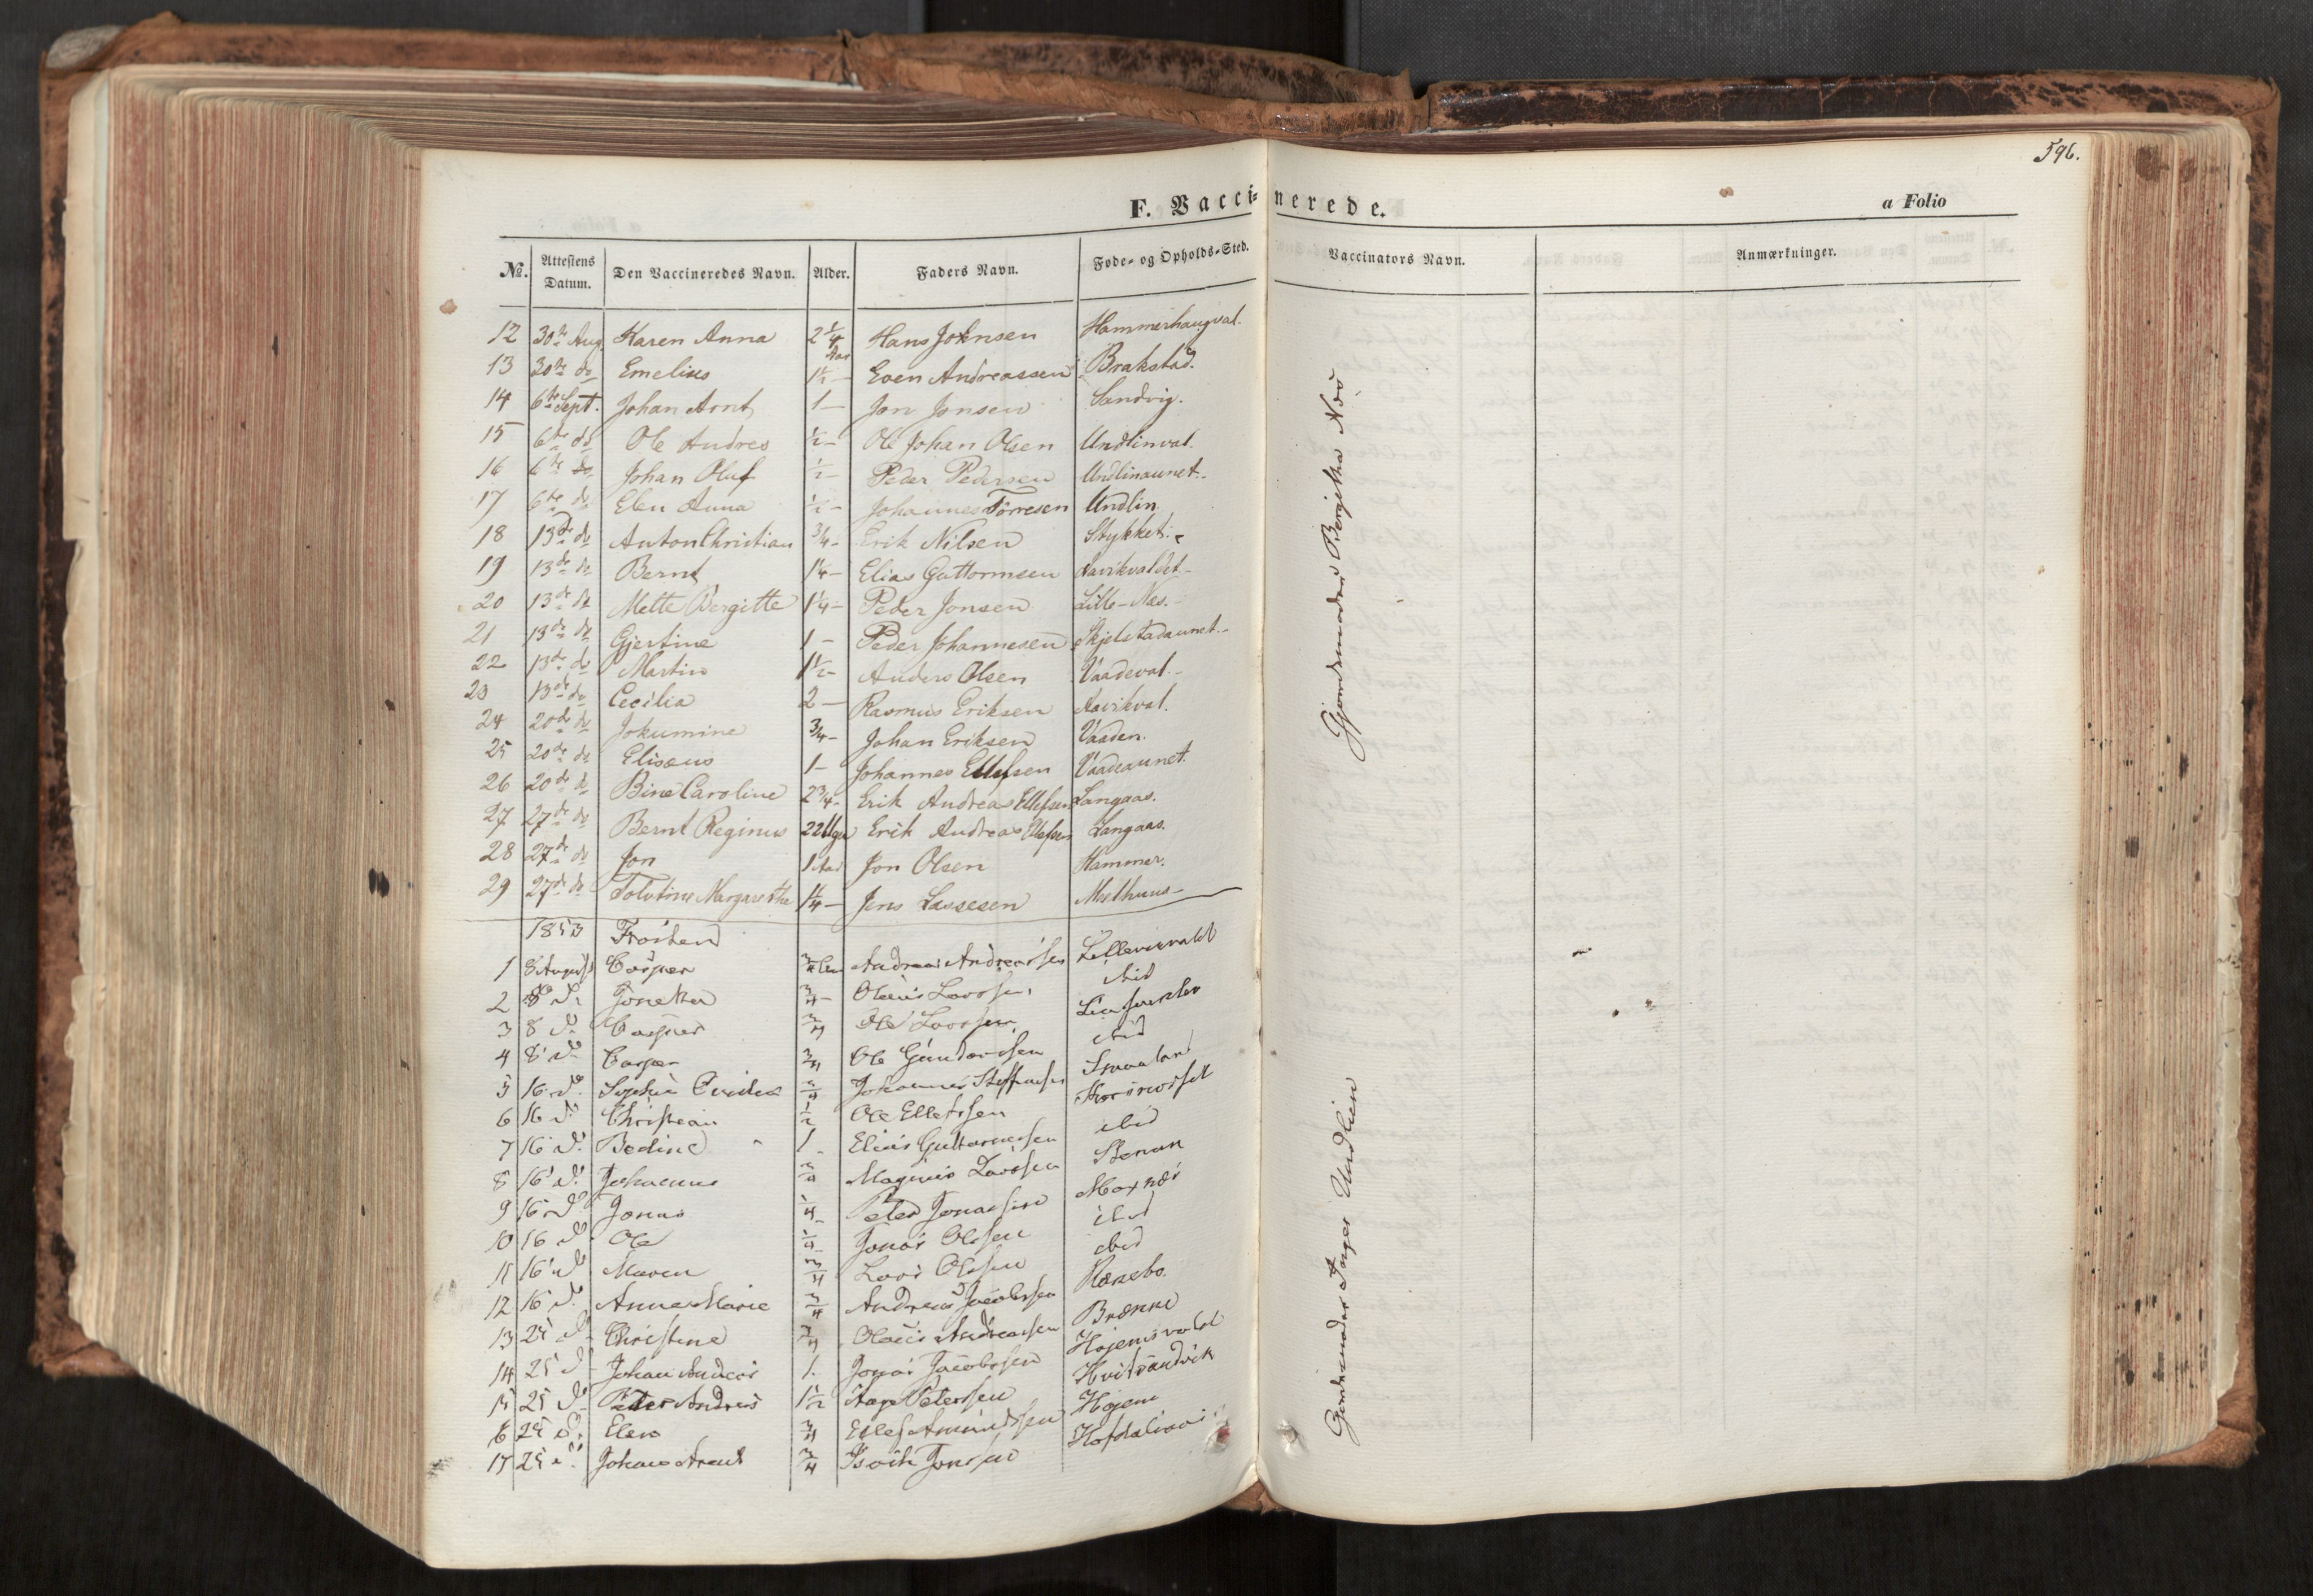 596.
F. Vacci-nerede.
a Folio
No. Attestens Datum. Den Vaccineredes Navn. Alder. Faders Navn. Føde- og Opholds-Sted. Vaccinators Navn. Anmærkninger.
12 30te Aug. Karen Anna 2 1/4 Aar Hans Johnsen Hammerhaugval.
13 30te do Emelius 1 1/2 — Even Andreassen Brakstad.
14 6te Sept. Johan Arnt 1 — Jon Jonsen Sandvig.
15 6te do Ole Andres 1/2 — Ole Johan Olsen Undlinval.
16 6te do Johan Oluf 1/2 — Peder Pedersen Undlinaunet.
17 6te do Elen Anna 1/2 — Johannes Törresen Undlin
18 13de do Anton Christian 3/4 — Erik Nilsen Stykket.
19 13de do Bernt 1 1/4 — Elias Guttormsen Aavikvaldet —
20 13de do Mette Bergitte 1 1/4 — Peder Jonsen Lille-Næs. —
21 13de do Gjertine 1 — Peder Johannesen Skjelstadaunet. —
22 13de do Martin 1 1/2 — Anders Olsen Vaadeval. —
23 13de do Cecilia 2 — Rasmus Eriksen Aavikval.
24 20de do Jokumine 3/4 — Johan Eriksen Vaaden.
25 20de do Elisæus 1 — Johannes Ellefsen Vaadeaunet.
26 20de do Bine Caroline 2 3/4 — Erik Andreas Ellefsen Langaas.
27 27de do Bernt Reginus 22 Uger Erik Andreas Ellefsen Langaas.
28 27de do Jon 1 Aar Jon Olsen Hammer.
29 27de do Margaretha 1 1/4 — Jens Lassesen Melhuus —
Gjordemoder Bergitha Nöö
1853
1 8 August Casper 3/4 Andreas Andreassen
2 8 do 3/4 — Olaus Larssen ibid
3 8 do Casper 3/4 Ole Larssen
4 8 do Casper 3/4 Ole Gundersen ibid
5 16 do Sophie 3/4 Johannes Steffensen
6 16 do Christian 1/2 Ole Ellefssen
7 16 do Bedine 1 — Elias Guttormsen ibid
8 16 do Johannes 3/4 Magnus Larssen Stenan
9 16 do Jonas 1/4 — Peter Jonassen Moxnæs
10 16 do Ole 3/4 — Jonas Olssen ibid
11 16 do Maren 3/4 Lars Olssen ibid
12 16 do Anne Marie 3/4 Andreas Jacobssen Hænebo
13 25 do Christine 3/4 Olaus Andreassen Brænne
14 25 do Johan Andreas 1. Jonas Jacobssen Hojemsvald
15 25 do Peter Andreas 1 1/2 Aage Peterssen Hvitsandvik
6 25 do Elen 3/4 Ellef Amundssen Hojem
17 25 do Johan Arent 3/4 Isach Jonssen
Gjordemoder Inger Undlien